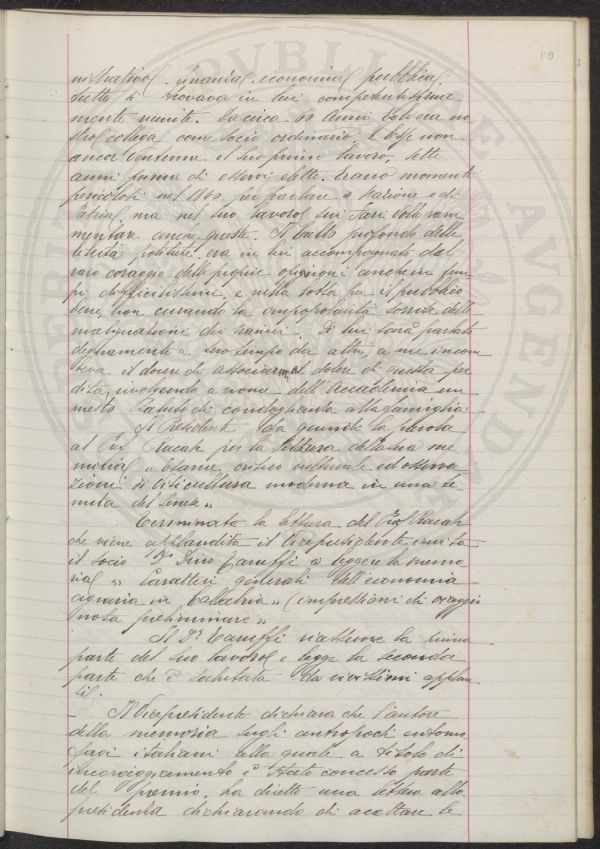 89
nistrative, finanziaf, economiaf, pubbliaf,
tutto si trovava in lui competentissima
mente riunite. Da circa 60 anni Egli era no
stro collega come socio ordinario, e lesse non
ancor ventenne il suo primo lavoro, sette
anni prima di esservi eletto. Erano momenti
pericolosi nel 1840 per parlare a Nazione e di
Patria, ma nel suo lavoro sui Fari volle ram
mentar anche queste. Il culto profondo delle
libertà politiche era in lui accompagnato dal
raro coraggio delle proprie opinioni anche in tem
pi difficilissimi, e nella lotta per il pubblico
bene, non curando la impopolarità sorrise delle
macchinazioni dei nemici. Di lui sarà parlato
degnamente a suo tempo da altri, a me incom
beva il dovere di associarmi al dolore di questa per
dita, inviando a nome dell'Accademia un
mesto saluto di condoglianza alla famiglia.
Il Presidente dà quindi la parola
al Prof. Racah per la lettura della sua me
moria " Esame critico culturale ed osserva
zioni di viticultura moderna in una te
nuta del Senese "
Terminata la lettura del Prof. Racah
che viene applaudita il Vicepresidente invita
il socio Dr. Dino Taruffi a leggere la memo
ria " Caratteri generali dell'economia
agraria in Calabria " (impressioni di viaggio
nota preliminare "
Il Dr. Taruffi riassume la prima
parte del suo lavoro e legge la seconda
parte che è salutata da vivissimi applau
si.
Il Vicepresidente dichiara che l'autore
della memoria sugli antropochi entomo
fagi italiani alla quale a titolo di
incoraggiamento è stato concesso parte
del premio, ha diretto una lettera alla
presidenza dichiarando di accettare le